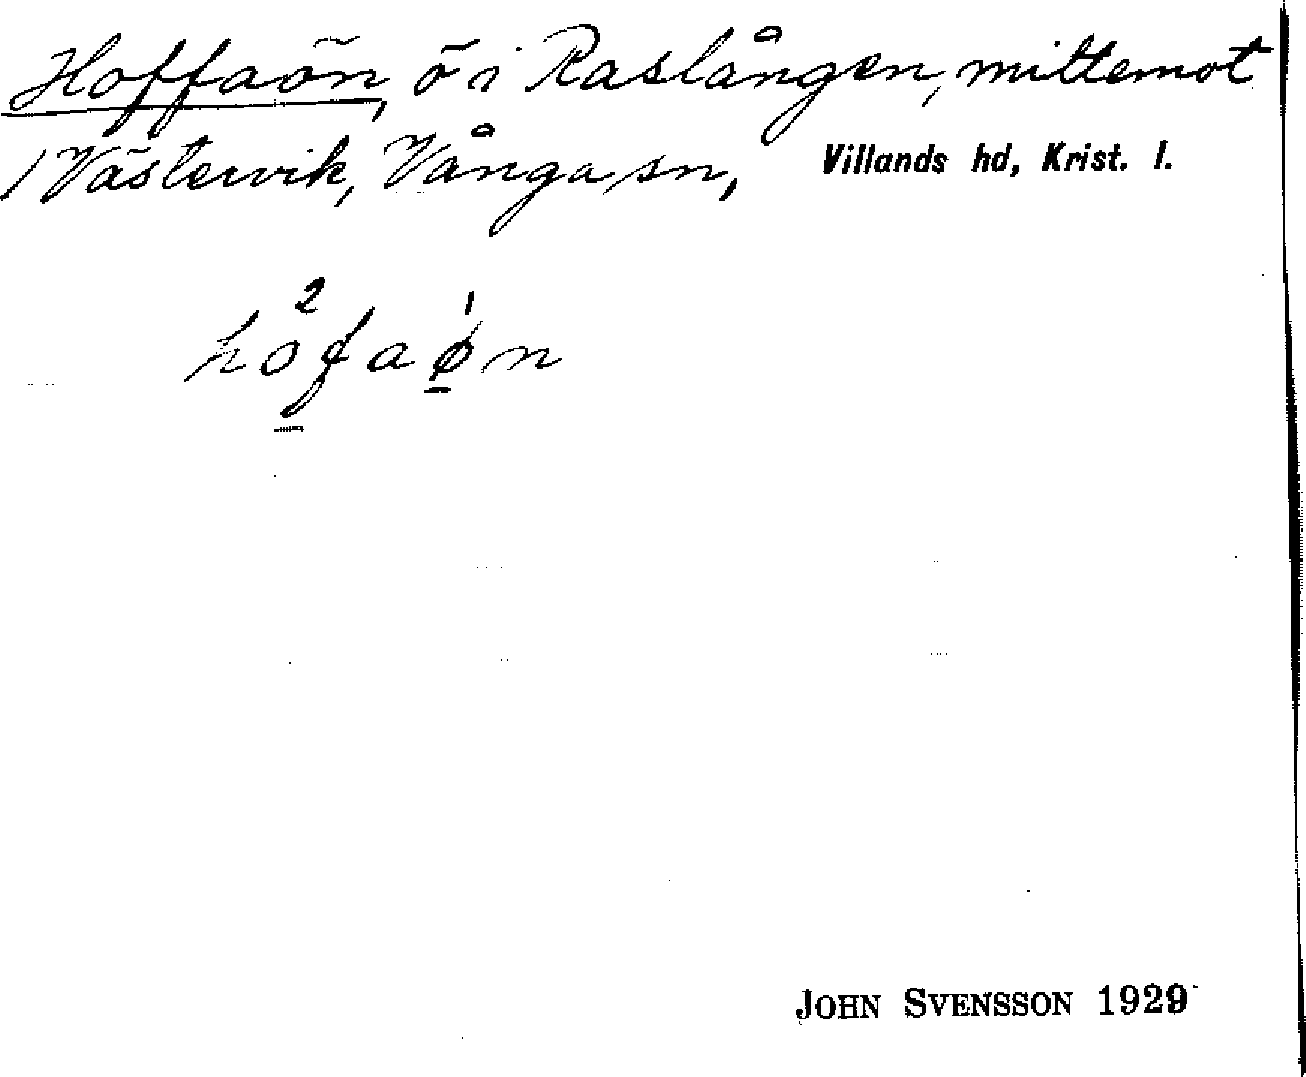 Hoffaön, ö i Raslången, mittemot
Västervik, Vånga sn, Villands hd, Krist. l.
2 1
håfaøn
JOHN SVENSSON 1929